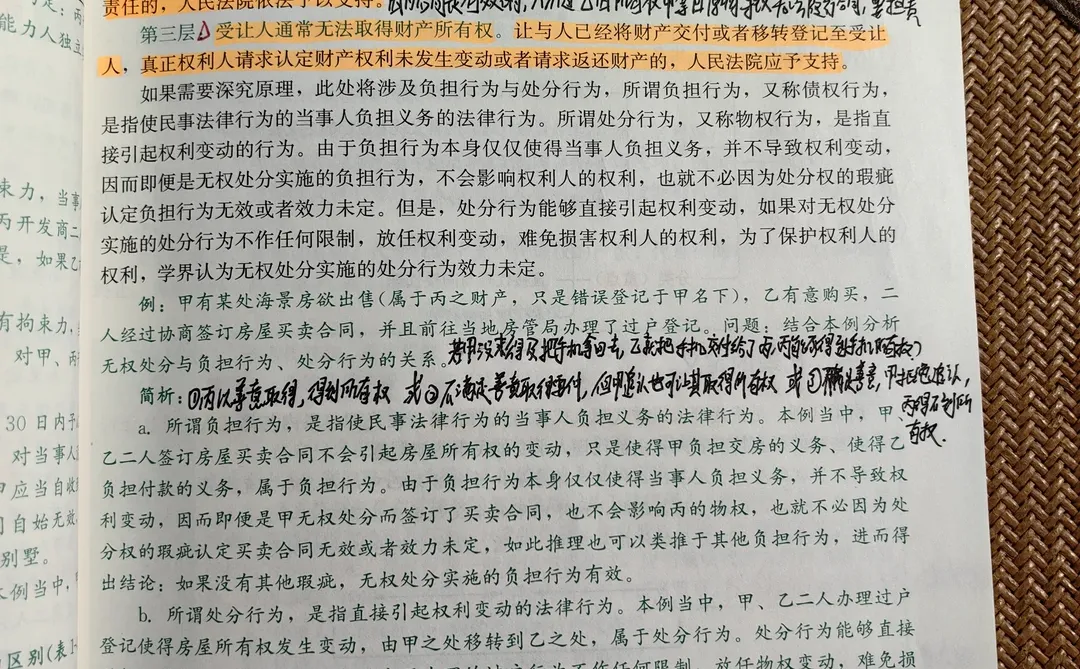 责任的，人民法院依法予以支持。
第三层 受让人通常无法取得财产所有权。让与人已经将财产交付或者移转登记至受让
人，真正权利人请求认定财产权利未发生变动或者请求返还财产的，人民法院应予支持。
如果需要深究原理，此处将涉及负担行为与处分行为，所谓负担行为，又称债权行为，
是指使民事法律行为的当事人负担义务的法律行为。所谓处分行为，又称物权行为，是指直
接引起权利变动的行为。由于负担行为本身仅仅使得当事人负担义务，并不导致权利变动，
因而即便是无权处分实施的负担行为，不会影响权利人的权利，也就不必因为处分权的瑕疵
认定负担行为无效或者效力未定。但是，处分行为能够直接引起权利变动，如果对无权处分
实施的处分行为不作任何限制，放任权利变动，难免损害权利人的权利，为了保护权利人的
权利，学界认为无权处分实施的处分行为效力未定。
例：甲有某处海景房欲出售（属于丙之财产，只是错误登记于甲名下），乙有意购买，二
人经过协商签订房屋买卖合同，并且前往当地房管局办理了过户登记。问题：结合本例分析
无权处分与负担行为、处分行为的关系。
简析：①丙以善意取得，得到所有权 或②不满足善意取得要件，但甲追认也可让其取得所有权 或
甲拒绝追认，
丙得不到所
有权.
a. 所谓负担行为，是指使民事法律行为的当事人负担义务的法律行为。本例当中，甲、
乙二人签订房屋买卖合同不会引起房屋所有权的变动，只是使得甲负担交房的义务、使得乙
负担付款的义务，属于负担行为。由于负担行为本身仅仅使得当事人负担义务，并不导致权
利变动，因而即便是甲无权处分而签订了买卖合同，也不会影响丙的物权，也就不必因为处
分权的瑕疵认定买卖合同无效或者效力未定，如此推理也可以类推于其他负担行为，进而得
出结论：如果没有其他瑕疵，无权处分实施的负担行为有效。
b. 所谓处分行为，是指直接引起权利变动的法律行为。本例当中，甲、乙二人办理过户
登记使得房屋所有权发生变动，由甲之处移转到乙之处，属于处分行为。处分行为能够直接
能力人独立
束力，当事
丙开发商二
是，如果乙
有拘束力，
对甲、
30 日内予
对当事人
甲应当自收
自始无效
别墅。
例当中，
区别（表1-